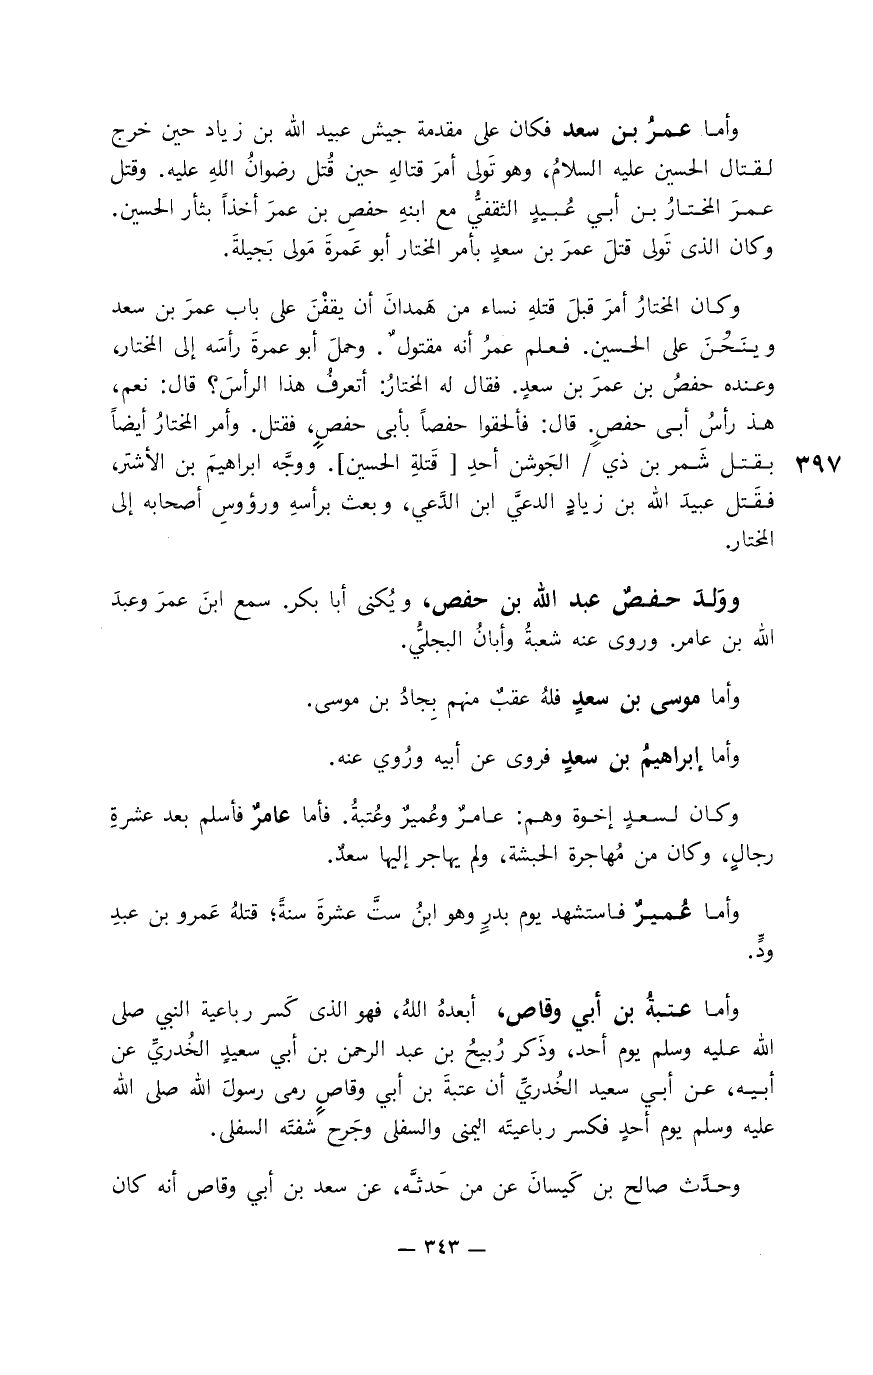 وأما عمرُ بن سعد فكان على مقدمة جيش عبيد الله بن زياد حين خرج
لقتال الحسين عليه السلامُ، وهو تَولى أمرَ قتالهِ حين قُتل رضوانُ اللهِ عليه. وقتل
عمرَ المختارُ بن أبي عُبيدٍ الثقفيُّ مع ابنهِ حفصِ بن عمرَ أخذاً بثأر الحسين.
وكان الذى تَولى قتلَ عمرَ بن سعدٍ بأمر المختار أبو عَمرةَ مَولى بَجيلةَ.
وكان المختارُ أمرَ قبلَ قتلهِ نساء من هَمدانَ أن يقفْنَ على باب عمرَ بن سعد
وينَحْنَ على الحسين. فعلم عمرُ أنه مقتولٌ. وحملَ أبو عمرةَ رأسَه إلى المختار،
وعنده حفصُ بن عمرَ بن سعدٍ. فقال له المختارُ: أتعرفُ هذا الرأسَ؟ قال: نعم،
هذ رأسُ أبى حفصٍ. قال: فألحقوا حفصاً بأبى حفصٍ، فقتل. وأمر المختارُ أيضاً
بقتل شَمر بن ذي / الجَوشن أحدِ [ قَتلةِ الحسين]. ووجَّه ابراهيمَ بن الأشتر، ٣٩٧
فقَتل عبيدَ الله بن زيادٍ الدعيَّ ابن الدَّعي، وبعث برأسهِ ورؤوسِ أصحابه إلى
المختار.
ووَلدَ حفصٌ عبد الله بن حفص، ويُكنى أبا بكر. سمع ابنَ عمرَ وعبدَ
الله بن عامر. وروى عنه شعبةُ وأبانُ البجليُّ.
وأما موسى بن سعدٍ فلهُ عقبٌ منهم بِجادُ بن موسى.
وأما إبراهيمُ بن سعدٍ فروى عن أبيه ورُوي عنه.
وكان لسعدٍ إخوة وهم: عامرٌ وعُميرٌ وعُتبةُ. فأما عامرٌ فأسلم بعد عشرةِ
رجالٍ، وكان من مُهاجرة الحبشة، ولم يهاجر إليها سعدٌ.
وأما عُميرٌ فاستشهد يوم بدرٍ وهو ابنُ ستَّ عشرةَ سنةً؛ قتلهُ عَمرو بن عبدِ
ودٍّ.
وأما عتبةُ بن أبي وقاص، أبعدهُ اللهُ، فهو الذى كَسر رباعية النبي صلى
الله عليه وسلم يوم أحد، وذَكر رُبيحُ بن عبد الرحمن بن أبي سعيدٍ الخُدريِّ عن
أبيه، عن أبي سعيد الخُدريِّ أن عتبةَ بن أبي وقاصٍ رمى رسولَ الله صلى الله
عليه وسلم يوم أحدٍ فكسر رباعيتَه اليمنى والسفلى وجَرح شفتَه السفلى.
وحدَّث صالح بن كَيسانَ عن من حَدثَّه، عن سعد بن أبي وقاص أنه كان
— ٣٤٣ —